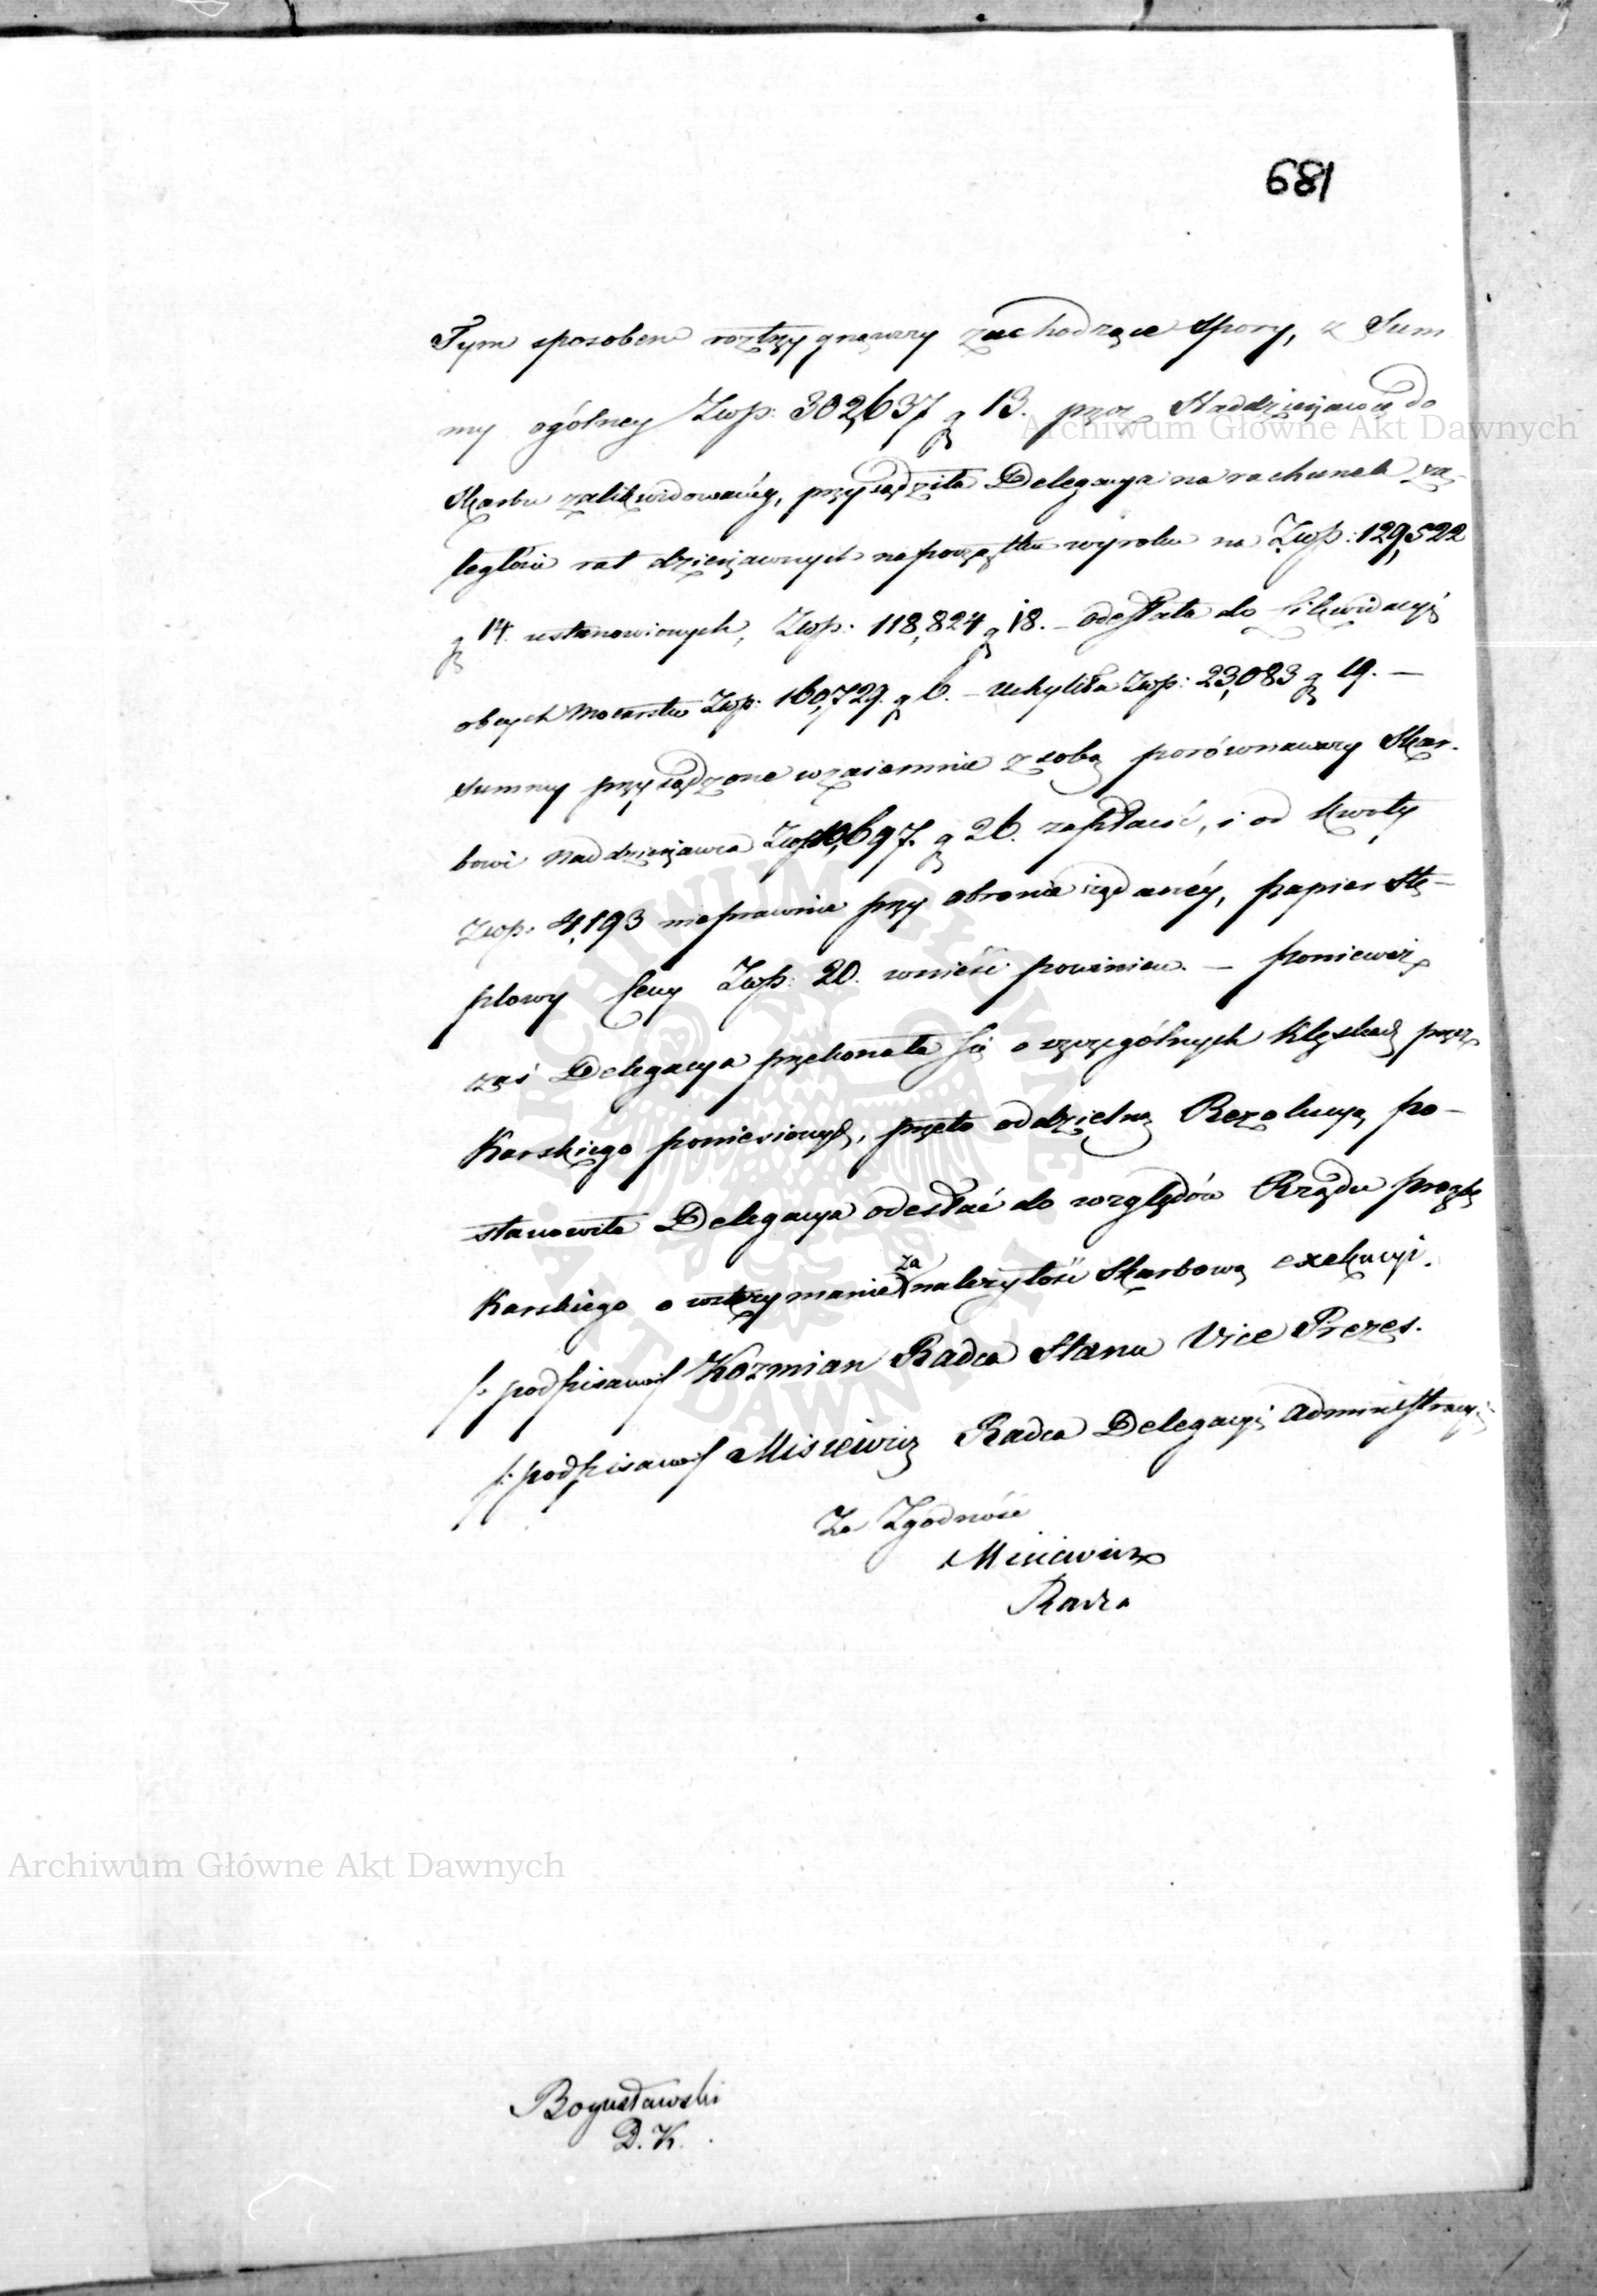 681
Tym sposobem roztrzygnąwszy zachodzące Spory, z Sum
my ogólney Złłp: 302,637 g 13. przez Naddzierżawcę do
Skarbu zalikwidowanéy, przysądziła Delegacya na rachunek za-
ległości rat dzierżawnych na początku wyroku na Złłp: 129,522
g 14. ustanowionych, Złłp: 118,824 g 18. – odesłała do Likwidacyi
obcych Mocarstw Złłp: 160,729. g 6. – Uchyliła Złłp: 23,083 g 19. –
Summy przysądzone wzaiemnie z sobą porównawszy Skar-
bowi Naddzierżawca Złłp 10,697. g 26. zapłacić, i od kwoty
Złłp. 4,193 nieprawnie przy obronie żądanéy, papier Stę-
plowy Ceny Złłp: 20. wnieść powinien. – Ponieważ
zaś Delegacya przekonała się o szczególnych klęskach przez
Karskiego poniesionych, przeto oddzielną Rezolucyą po-
stanowiła Delegacya odesłać do względów Rządu prozbę
Karskiego o wstrzymanie za należytość Skarbową exekucyi.
/: podpisano / Koźmian Radca Stanu Vice Prezes.
/: podpisano / Misiewicz Radca Delegacyi Administracyi
Za Zgodność
Misiewicz
Radca
Bogusławski
D. K.
Archiwum Główne Akt Dawnych
Archiwum Główne Akt Dawnych
ARCHIWUM GŁÓWNE · AKT DAWNYCH ·